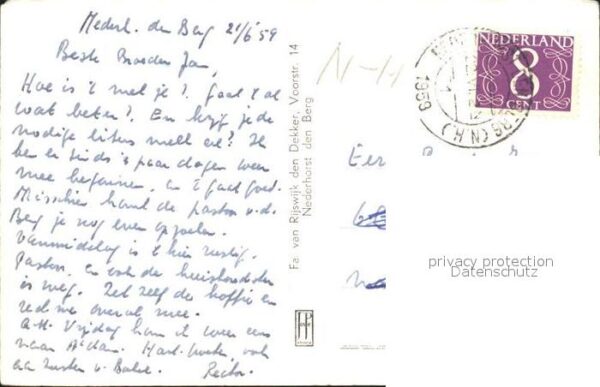 Nederh. den Berg 21/6 '59
Beste Broeder Jan,
Hoe is 't met je? Gaat 't al
wat beter? En krijg je de
nodige liters melk al? Ik
ben er sinds 'n paar dagen weer
mee begonnen, en 't gaat goed.
Misschien komt de pastoor v.d.
Berg je nog even opzoeken.
Vanmiddag is 't hier rustig.
Pastoor, en ook de huishoudster
is weg. Zet zelf de koffie en
red me overal mee.
a.s. Vrijdag kom ik weer een
naar A'dam. Hart. Groeten, ook
aan Zuster v. Rector.
Fa. van Rijswijk den Dekker, Voorstr. 14
Nederhorst den Berg
NEDERLAND
8
CENT
BERG (N.H.)
1959
privacy protection
Datenschutz